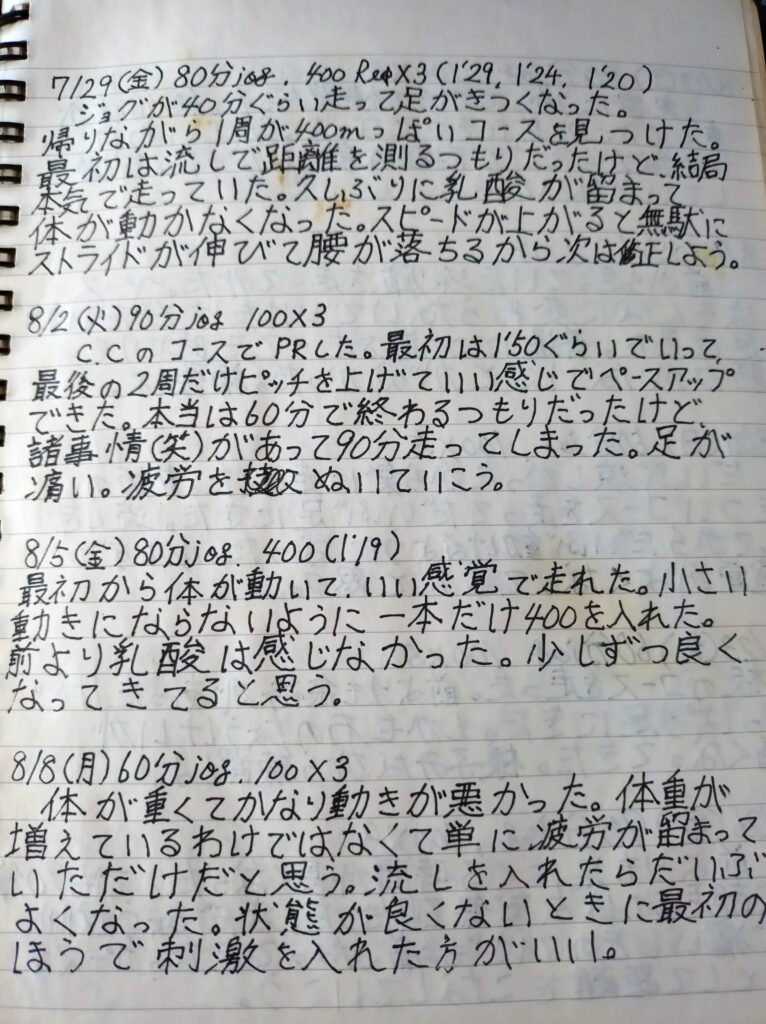 7/29(金) 80分jog. 400 Rep×3 (1'29, 1'24, 1'20)
ジョグが40分ぐらい走って足がきつくなった。
帰りながら1周が400mっぽいコースを見つけた。
最初は流しで距離を測るつもりだったけど、結局
本気で走っていた。久しぶりに乳酸が留まって
体が動かなくなった。スピードが上がると無駄に
ストライドが伸びて腰が落ちるから次は修正しよう。
8/2(火)90分jog 100×3
C.CのコースでPRした。最初は1'50ぐらいでいって、
最後の2周だけピッチを上げていい感じでペースアップ
できた。本当は60分で終わるつもりだったけど、
諸事情(笑)があって90分走ってしまった。足が
痛い。疲労をぬいていこう。
8/5(金)80分jog. 400(1'19)
最初から体が動いて、いい感覚で走れた。小さい
動きにならないように一本だけ400を入れた。
前より乳酸は感じなかった。少しずつ良く
なってきてると思う。
8/8(月)60分jog. 100×3
体が重くてかなり動きが悪かった。体重が
増えているわけではなくて単に疲労が留まって
いただけだと思う。流しを入れたらだいぶ
よくなった。状態が良くないときに最初の
ほうで刺激を入れた方がいい。